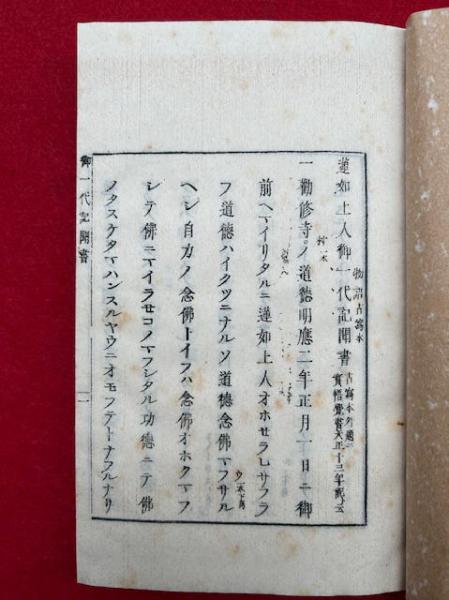 蓮如上人御一代記聞書
物語古寫本
一勸修寺ノ道德明應二年正月一日ニ御
前ヘマイリタルニ蓮如上人オホセラレサフラ
フ道德ハイクツニナルソ道德念佛マフサル
ヘシ自力ノ念佛トイフハ念佛オホクマフ
シテ佛ニマイラセコノマフシタル功德ニテ佛
ノタスケタマハンスルヤウニオモフテトナフルナリ
御一代記聞書
一